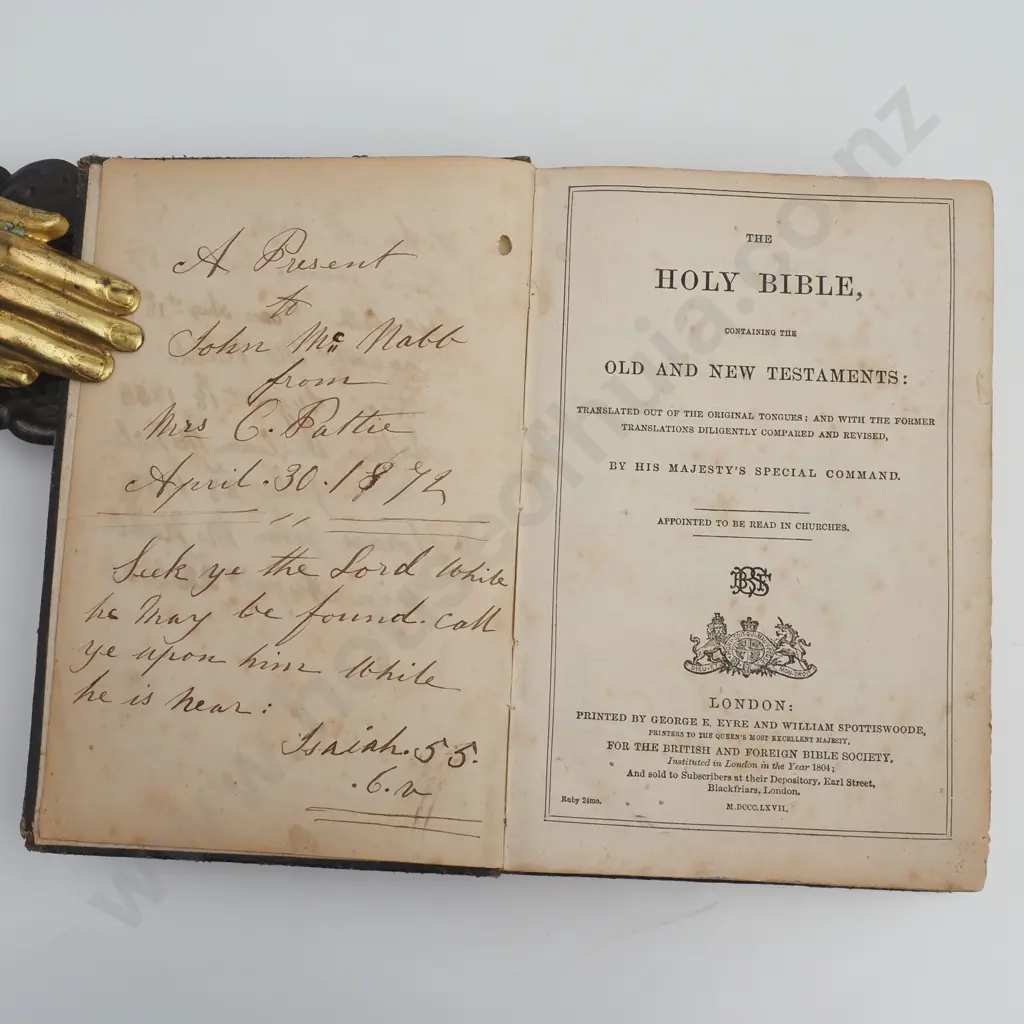 A Present
to
John Mc Nabb
from
Mrs C. Pattie
April. 30. 1872
Seek ye the Lord While
he May be found. call
ye upon him While
he is near:
Isaiah. 55.
.6.v
THE
HOLY BIBLE,
CONTAINING THE
OLD AND NEW TESTAMENTS:
TRANSLATED OUT OF THE ORIGINAL TONGUES; AND WITH THE FORMER
TRANSLATIONS DILIGENTLY COMPARED AND REVISED,
BY HIS MAJESTY'S SPECIAL COMMAND.
APPOINTED TO BE READ IN CHURCHES.
LONDON:
PRINTED BY GEORGE E. EYRE AND WILLIAM SPOTTISWOODE,
PRINTERS TO THE QUEEN'S MOST EXCELLENT MAJESTY,
FOR THE BRITISH AND FOREIGN BIBLE SOCIETY,
Instituted in London in the Year 1804;
And sold to Subscribers at their Depository, Earl Street,
Blackfriars, London.
Ruby 24mo.
M.DCCC.LXVII.
www.houseofnuia.co.nz